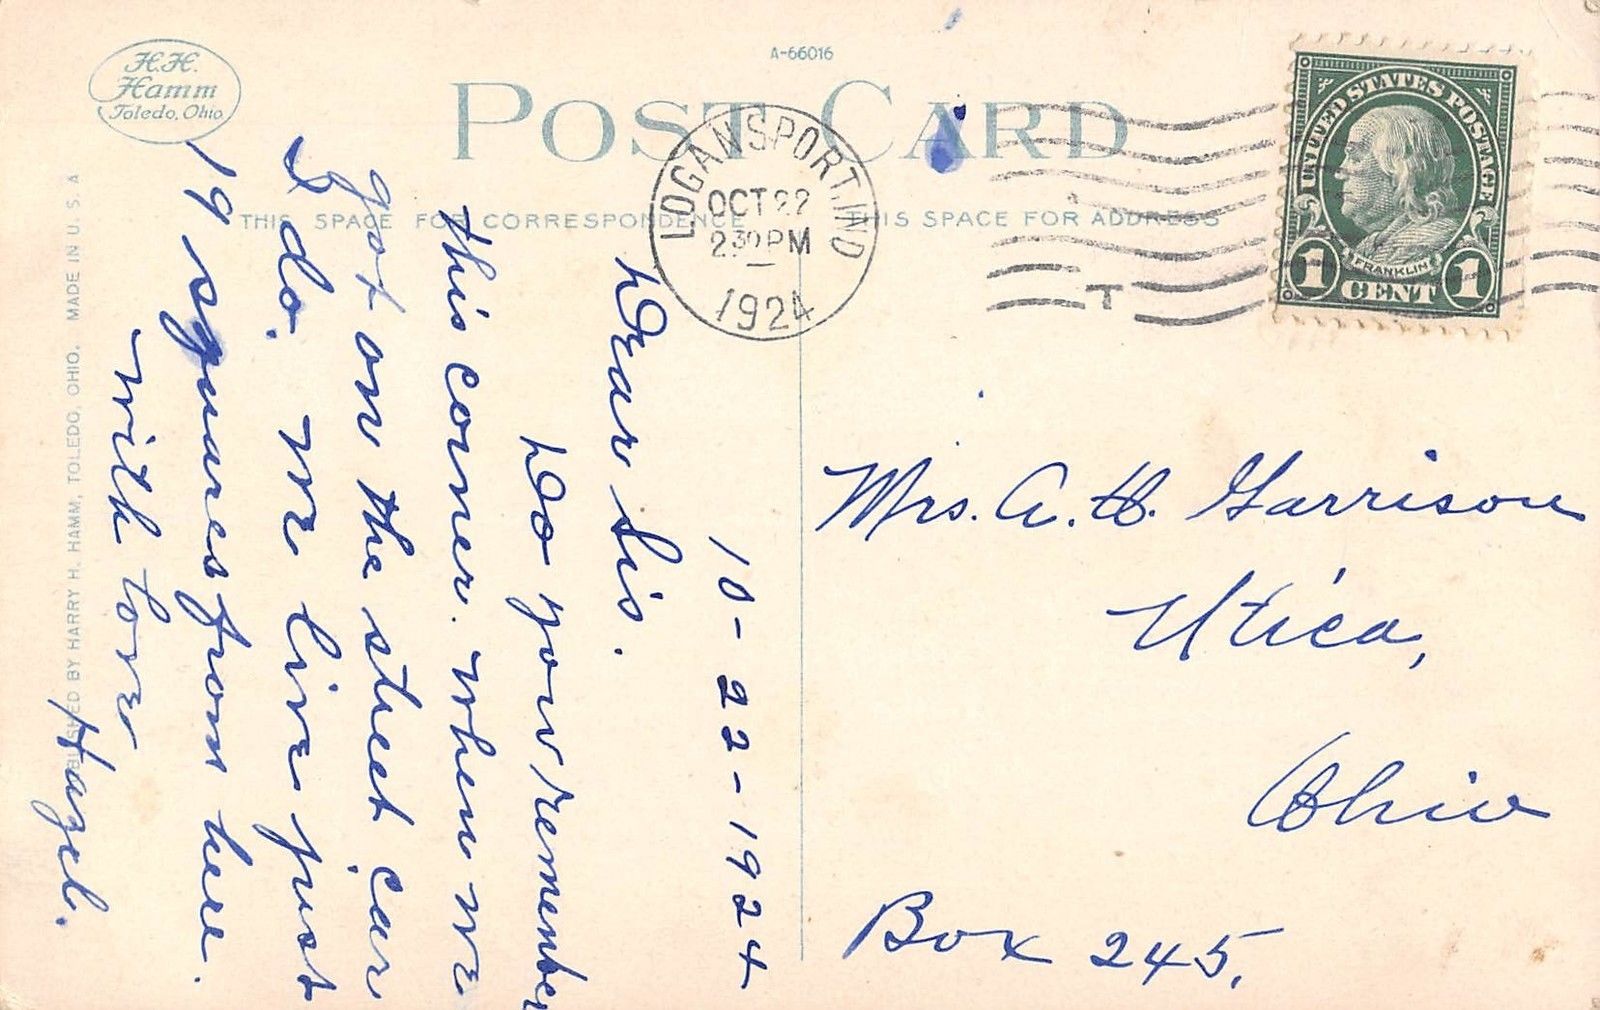 H.H.
Hamm
Toledo, Ohio
A-66016
POST CARD
THIS SPACE FOR CORRESPONDENCE
THIS SPACE FOR ADDRESS
LOGANSPORT, IND
OCT 22
2 30 PM
1924
T
UNITED STATES POSTAGE
FRANKLIN
1 CENT 1
10-22-1924
Dear Sis.
Do you remember
this corner. when we
got on the street car
I do. we live just
19 squares from here.
with love
Hazel.
Mrs. A. H. Garrison
Utica,
Ohio
Box 245.
PUBLISHED BY HARRY H. HAMM, TOLEDO, OHIO. MADE IN U. S. A